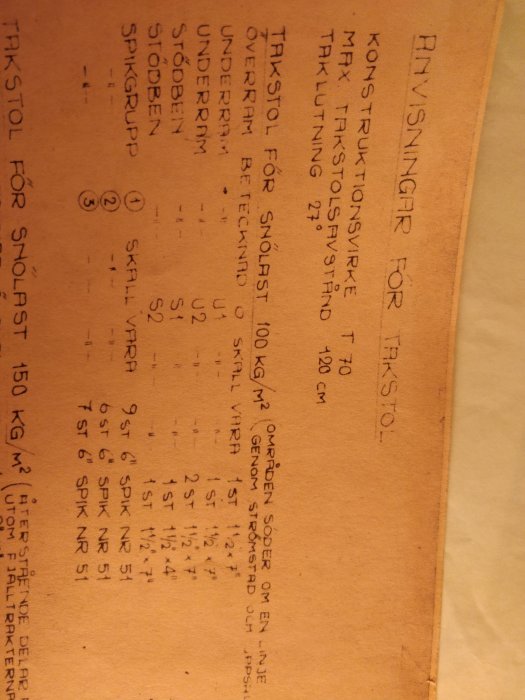 ANVISNINGAR FÖR TAKSTOL
KONSTRUKTIONSVIRKE T 70
MAX. TAKSTOLSAVSTÅND 120 CM
TAKLUTNING 27°
TAKSTOL FÖR SNÖLAST 100 KG/M² (OMRÅDEN SÖDER OM EN LINJE
GENOM STRÖMSTAD OCH
ÖVERRAM BETECKNAD O SKALL VARA 1 ST 1½" × 7"
UNDERRAM -"- U1 -"- 1 ST 1½" × 7"
UNDERRAM -"- U2 -"- 2 ST 1½" × 7"
STÖDBEN -"- S1 -"- 1 ST 1½" × 4"
STÖDBEN -"- S2 -"- 1 ST 1½" × 7"
SPIKGRUPP 1 SKALL VARA 9 ST 6" SPIK NR 51
-"- 2 -"- 6 ST 6" SPIK NR 51
-"- 3 -"- 7 ST 6" SPIK NR 51
TAKSTOL FÖR SNÖLAST 150 KG/M² (ÅTERSTÅENDE DELAR
UTOM FJÄLLTRAKTERNA